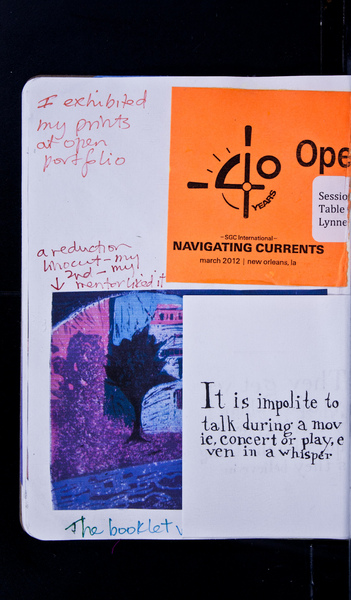 I exhibited
my prints
at open
portfolio
40
YEARS
Ope
Sessio
Table
Lynne
– SGC International –
NAVIGATING CURRENTS
march 2012 | new orleans, la
a reduction
linocut – my
2nd – my
mentor liked it
It is impolite to
talk during a mov
ie, concert or play, e
ven in a whisper
The booklet